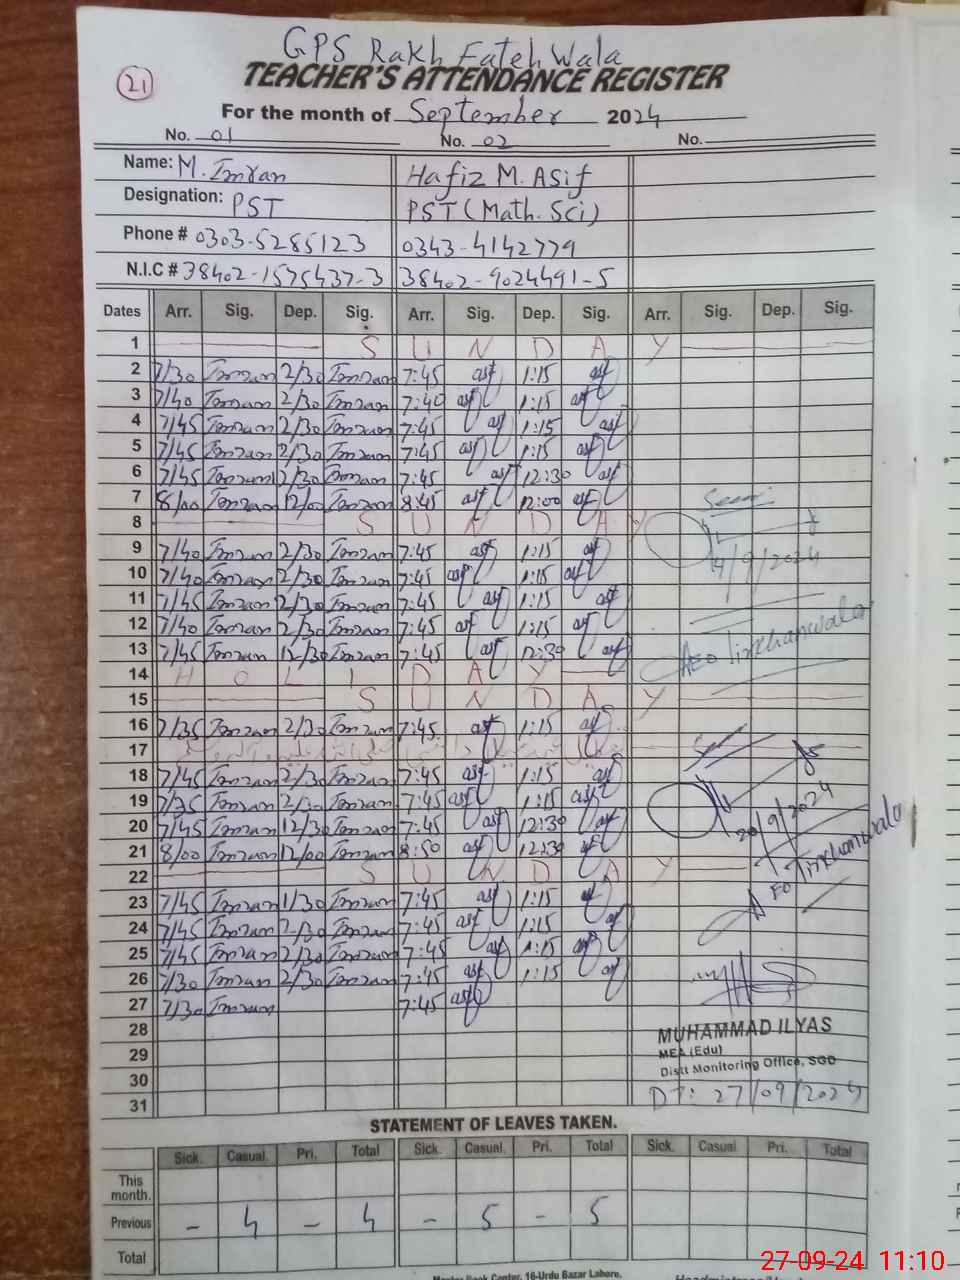 GPS Rakh Fateh Wala
21
TEACHER'S ATTENDANCE REGISTER
For the month of September 2024
No. 01 No. 02 No.
Name: M. Imran Hafiz M. Asif
Designation: PST PST (Math. Sci)
Phone # 0303-5285123 0343-4142779
N.I.C # 38402-1575437-3 38402-9024491-5
Dates Arr. Sig. Dep. Sig. Arr. Sig. Dep. Sig. Arr. Sig. Dep. Sig.
1 S U N D A Y
2 7/30 Imran 2/30 Imran 7:45 asf 1:15 asf
3 7/40 Imran 2/30 Imran 7:40 asf 1:15 asf
4 7/45 Imran 2/30 Imran 7:45 asf 1:15 asf
5 7/45 Imran 2/30 Imran 7:45 asf 1:15 asf
6 7/45 Imran 12/30 Imran 7:45 asf 12:30 asf
7 8/00 Imran 12/00 Imran 8:45 asf 12:00 asf Seen
8 S U N D A Y
9 7/40 Imran 2/30 Imran 7:45 asf 1:15 asf 14/9/2024
10 7/40 Imran 2/30 Imran 7:45 asf 1:15 asf
11 7/45 Imran 2/30 Imran 7:45 asf 1:15 asf
12 7/40 Imran 2/30 Imran 7:45 asf 1:15 asf
13 7/45 Imran 12/30 Imran 7:45 asf 12:30 asf AEO Tirkhanwala
14 H O L I D A Y
15 S U N D A Y
16 7/35 Imran 2/30 Imran 7:45 asf 1:15 asf
17
18 7/45 Imran 2/30 Imran 7:45 asf 1:15 asf
19 7/35 Imran 2/30 Imran 7:45 asf 1:15 asf
20 7/45 Imran 12/30 Imran 7:45 asf 12:30 asf 20/9/2024
21 8/00 Imran 12/00 Imran 8:50 asf 12:30 asf AEO Tirkhanwala
22 S U N D A Y
23 7/45 Imran 1/30 Imran 7:45 asf 1:15 asf
24 7/45 Imran 2/30 Imran 7:45 asf 1:15 asf
25 7/45 Imran 2/30 Imran 7:45 asf 1:15 asf
26 7/30 Imran 2/30 Imran 7:45 asf 1:15 asf
27 7/30 Imran 7:45 asf
28 MUHAMMAD ILYAS
29 MEA (Edu)
Distt Monitoring Office, SGD
30 DT: 27/09/2024
31
STATEMENT OF LEAVES TAKEN.
Sick. Casual. Pri. Total Sick. Casual. Pri. Total Sick. Casual. Pri. Total
This month.
Previous - 4 - 4 - 5 - 5
Total
Master Book Center, 16-Urdu Bazar Lahore.
27-09-24 11:10